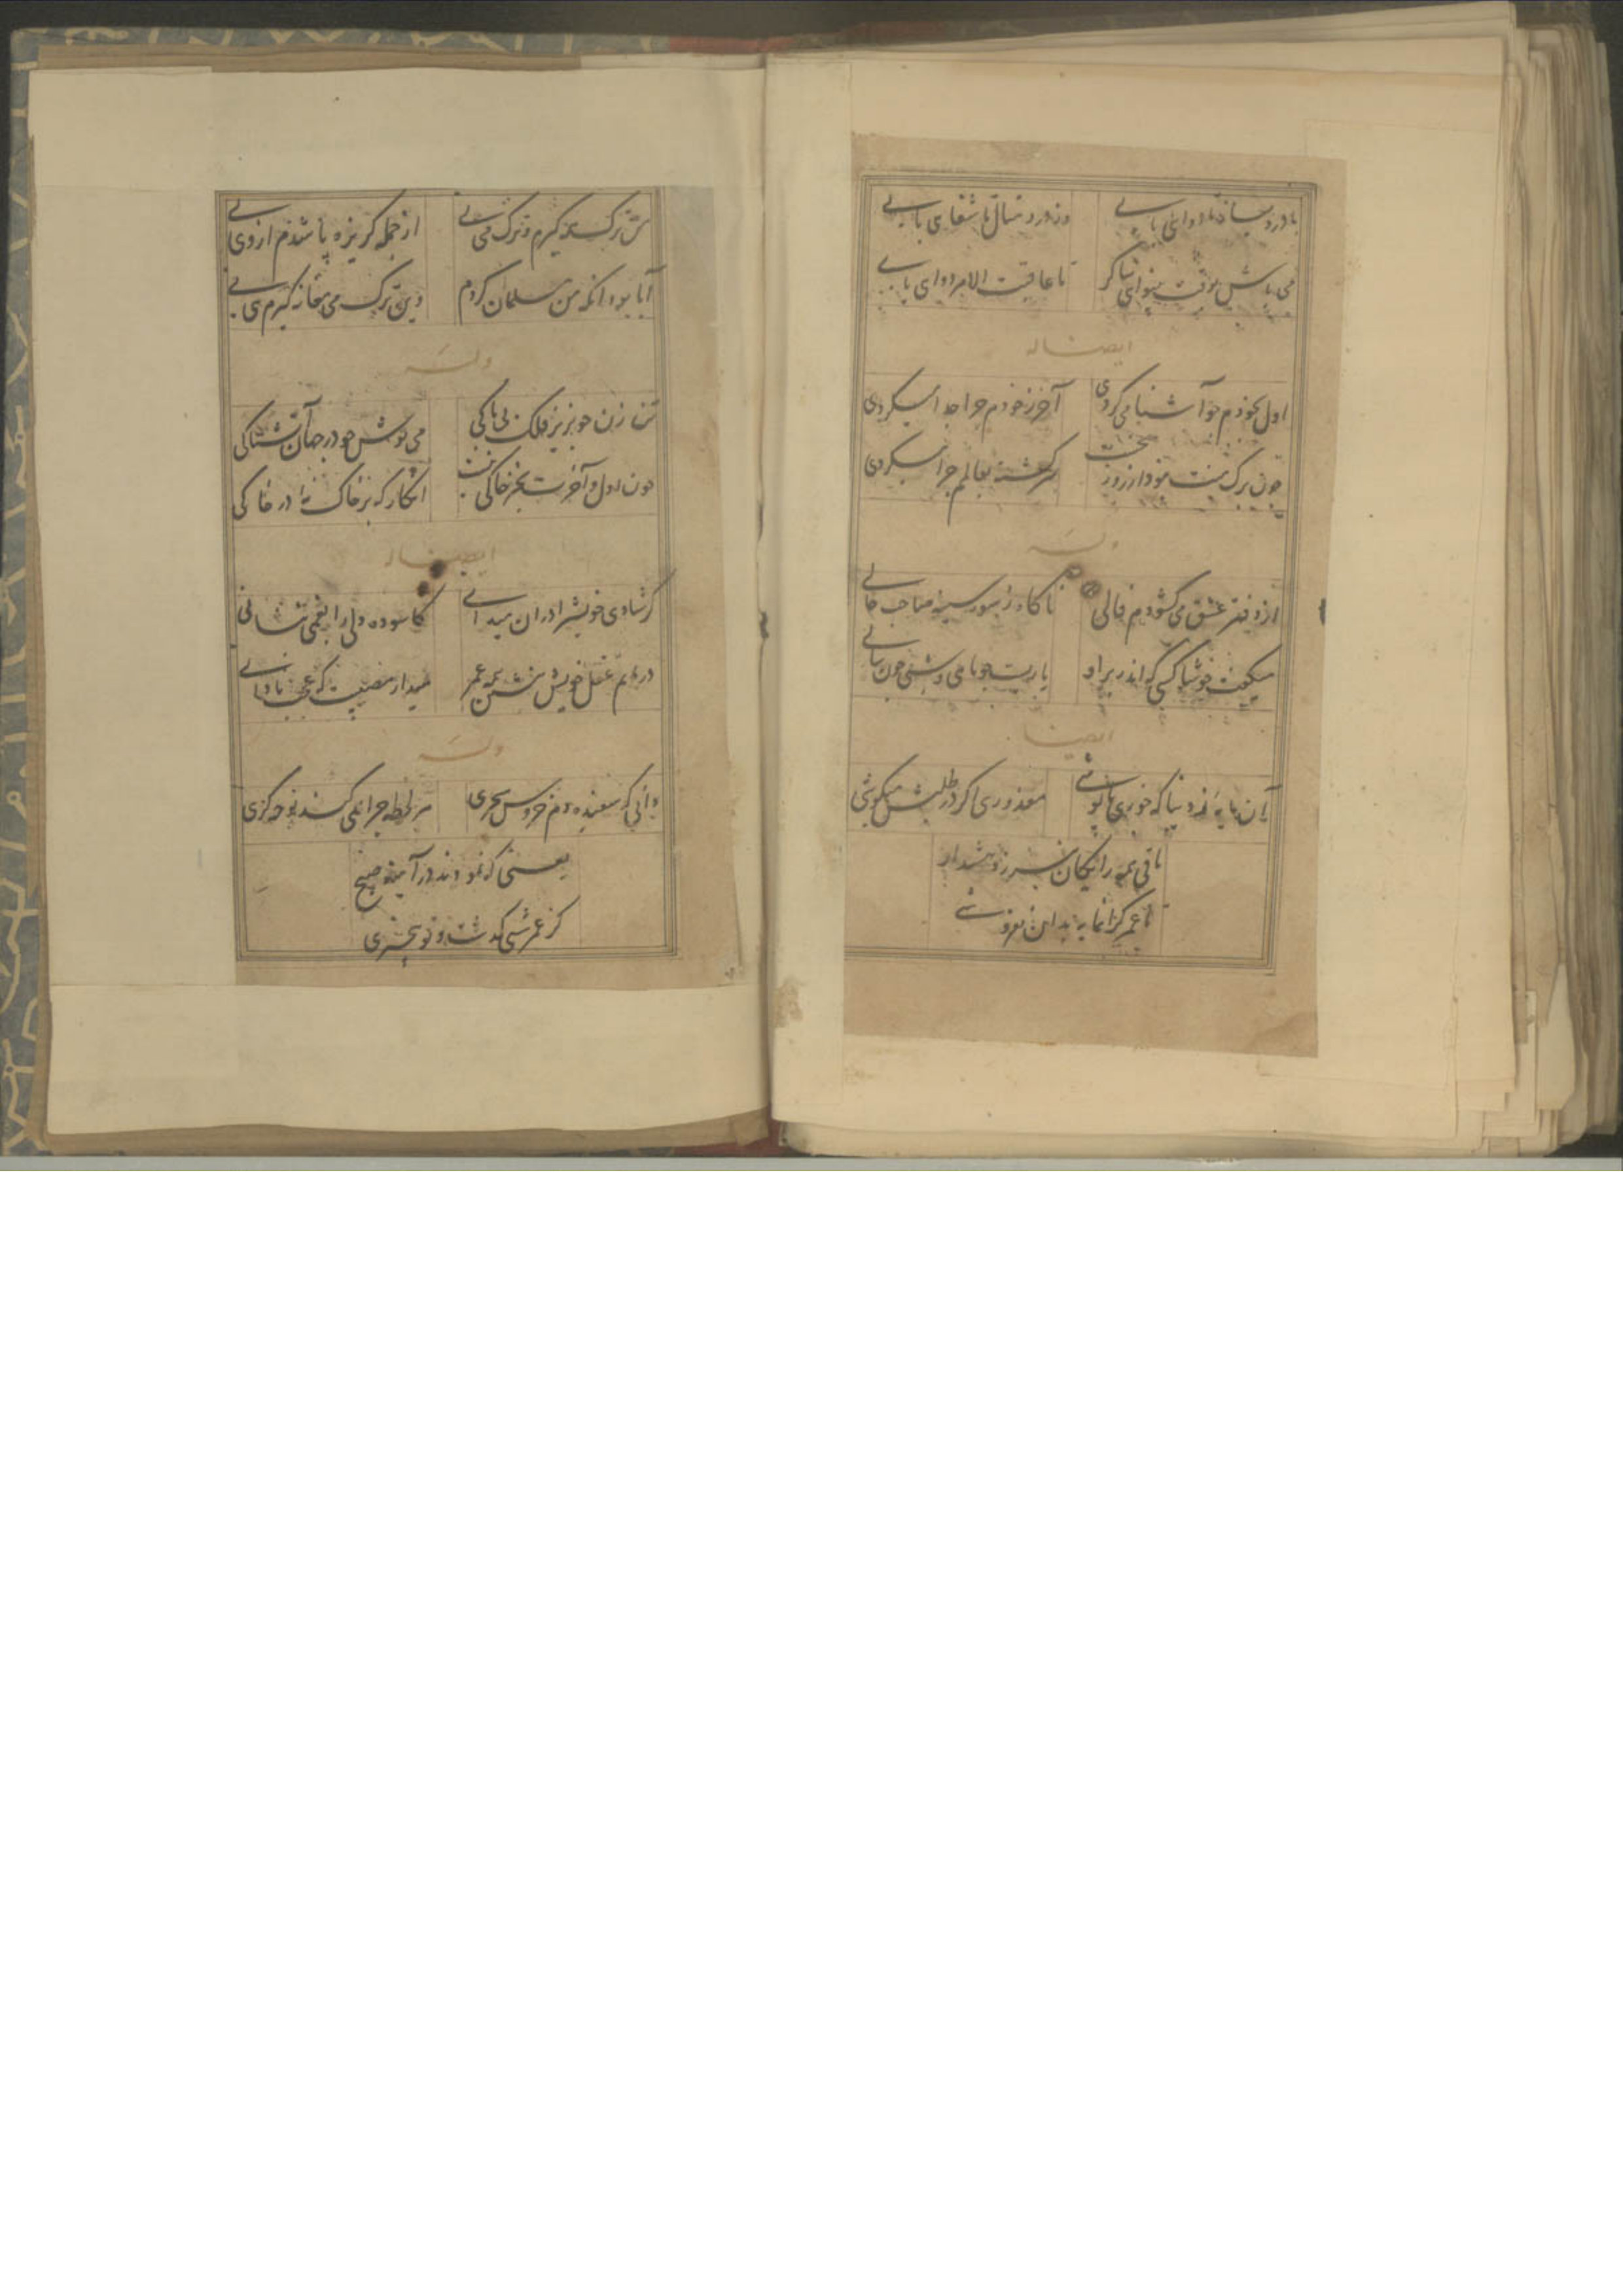 با درد بساز تا دوائی یابی وز درد منال تا شفای یابی
می باش بوقت بینوائی شاکر تا عاقبت الامر دوای یابی
ایضا له
اول بخودم چو آشنا میکردی آخر ز خودم چرا جدا میکردی
چون ترک منت نبود از روز نخست سرگشته بعالم چرا میکردی
وله
از دفتر عشق میکشودم فالی ناگاه ز سوز سینه صاحب حالی
میگفت خوشا کسی که اندر بر او یاریست چو ماهی و شبی چون سالی
ایضا
آن مایه ز دنیا که خوری یا پوشی معذوری اگر در طلبش میکوشی
باقی همه رایگان نیرزد هشدار
تا عمر گرانمایه بدان نفروشی
من ترک همه گیرم و ترک می نی از جمله گریزه باشدم از وی نی
آیا بود آنکه من مسلمان گردم وین ترک می مغانه گیرم هی نی
وله
تن زن چو بزیر فلک بی باکی می نوش چو در جهان آفتناکی
چون اول و آخرت بجز خاکی نیست انگار که بر خاک نۀ در خاکی
ایضا له
گر شادی خویشتن در آن میدانی کاسوده دلی را بغمی بنشانی
در ماتم عقل خویش بنشین همه عمر میدار مصیبت که عجب نادانی
وله
دانی که سفیده دم خروس سحری هر لحظه چرا همی کند نوحه گری
یعنی که نمودند در آینه صبح
کز عمر شبی گذشت و تو بیخبری